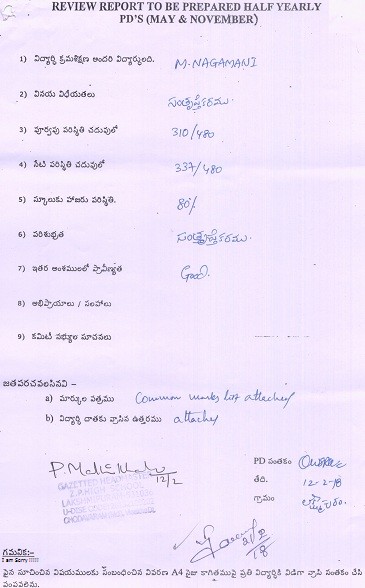 REVIEW REPORT TO BE PREPARED HALF YEARLY
PD'S (MAY & NOVEMBER)
1) విద్యార్థి క్రమశిక్షణ అందరి విద్యార్థులది. M. NAGAMANI
2) వినయ విధేయతలు సంతృప్తికరము.
3) పూర్వపు పరిస్థితి చదువులో 310/480
4) నేటి పరిస్థితి చదువులో 337/480
5) స్కూలుకు హాజరు పరిస్థితి. 80%
6) పరిశుభ్రత సంతృప్తికరము.
7) ఇతర అంశములలో ప్రావీణ్యత Good.
8) అభిప్రాయాలు / సలహాలు
9) కమిటీ సభ్యుల సూచనలు
జతపరచవలసినవి -
a) మార్కుల పత్రము Common marks list attached
b) విద్యార్థి దాతకు వ్రాసిన ఉత్తరము attached
PD సంతకం
12/2
GAZETTED HEADMASTER
తేది. 12-2-18
గ్రామం
గమనిక:-
I am Sorry !!!!!
పైన సూచించిన విషయములకు సంబంధించిన వివరణ A4 సైజు కాగితముపై ప్రతి విద్యార్థికి విడిగా వ్రాసి సంతకం చేసి
పంపవలెను.